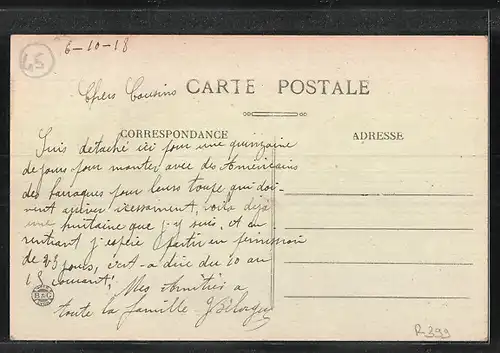 45
6-10-18
Chers Cousins
CARTE POSTALE
CORRESPONDANCE
ADRESSE
Suis detaché ici pour une quinzaine
de jours pour monter avec des Américains
des barraques pour leurs toupe qui doi-
vent arriver icessament, voila déjà
une huitaine que j'y suis. et en
rentrant j'espère partir en permission
de 23 jours, c'est-a dire du 10 au
15 courant; Mes Amitiés a
toute la famille
B&G
R399